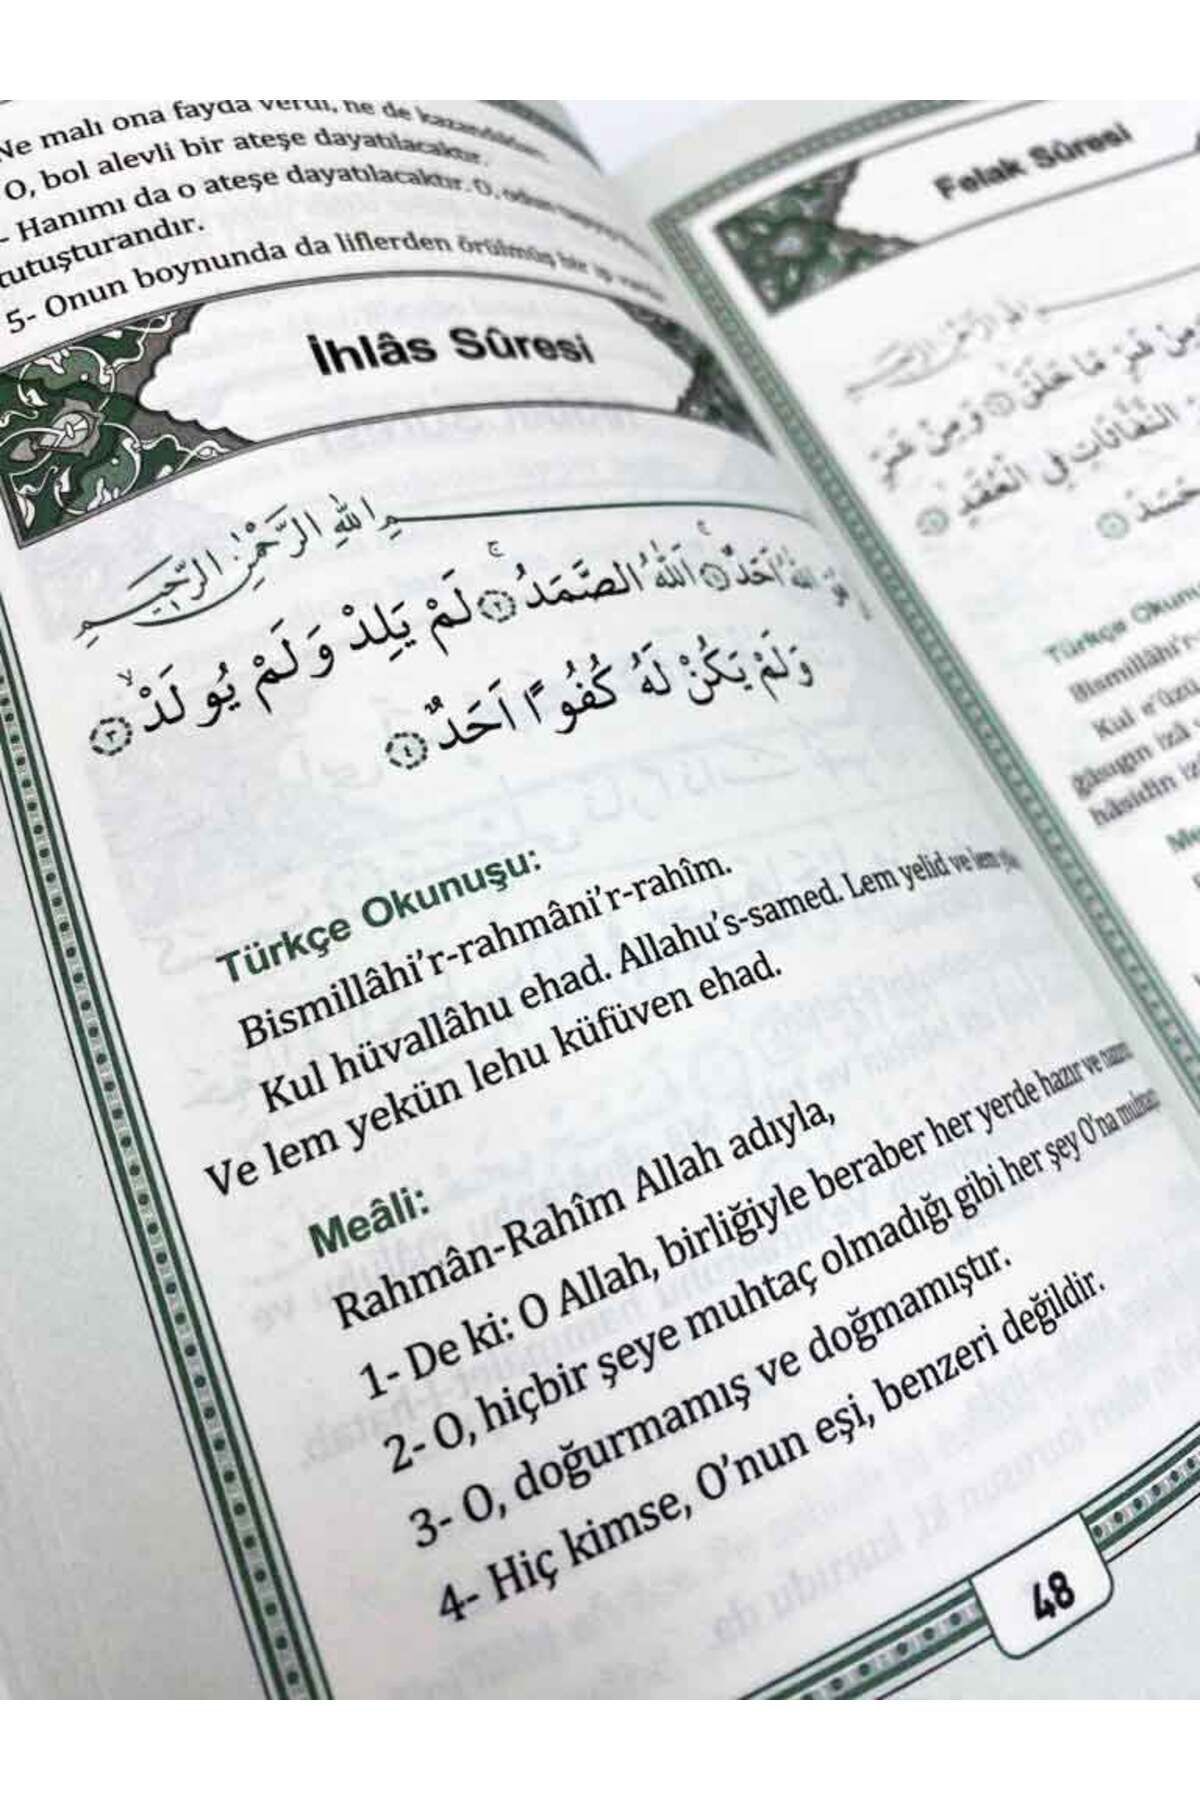 Ne malı ona fayda verdi, ne de
O, bol alevli bir ateşe dayatılacaktır.
- Hanımı da o ateşe dayatılacaktır. O, odun
tutuşturandır.
5- Onun boynunda da liflerden örülmüş bir ip
İhlâs Sûresi
مِ اللّٰهِ الرَّحْمٰنِ الرَّحٖيمِ
اللّٰهُ اَحَدٌۚ ﴿١﴾ اَللّٰهُ الصَّمَدُۚ ﴿٢﴾ لَمْ يَلِدْ وَلَمْ يُولَدْۙ ﴿٣﴾
وَلَمْ يَكُنْ لَهُ كُفُوًا اَحَدٌ ﴿٤﴾
Türkçe Okunuşu:
Bismillâhi'r-rahmâni'r-rahîm.
Kul hüvallâhu ehad. Allahu's-samed. Lem yelid ve lem
Ve lem yekün lehu küfüven ehad.
Meâli:
Rahmân-Rahîm Allah adıyla,
1- De ki: O Allah, birliğiyle beraber her yerde hazır ve
2- O, hiçbir şeye muhtaç olmadığı gibi her şey O'na
3- O, doğurmamış ve doğmamıştır.
4- Hiç kimse, O'nun eşi, benzeri değildir.
48
Felak Sûresi
اللّٰهِ الرَّحْمٰنِ الرَّحٖيمِ
مِنْ شَرِّ مَا خَلَقَۙ ﴿٢﴾ وَمِنْ شَرِّ
النَّفَّاثَاتِ فِي الْعُقَدِۙ
حَسَدَ
Türkçe
Bismillâhi'r-
Kul e'ûzü
ğâsıgın izâ
hâsidin